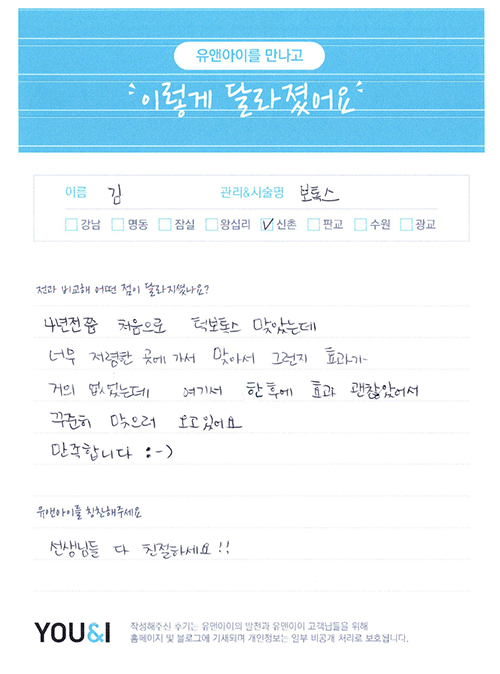 유앤아이를 만나고
이렇게 달라졌어요
이름 김 관리&시술명 보톡스
강남 명동 잠실 왕십리 신촌 판교 수원 광교
전과 비교해 어떤 점이 달라지셨나요?
4년전쯤 처음으로 턱보톡스 맞았는데
너무 저렴한 곳에 가서 맞아서 그런지 효과가
거의 없었는데 여기서 한 후에 효과 괜찮았어서
꾸준히 맞으러 오고있어요
만족합니다 :-)
유앤아이를 칭찬해주세요
선생님들 다 친절하세요!!
YOU&I
작성해주신 후기는 유앤아이의 발전과 유앤아이 고객님들을 위해
홈페이지 및 블로그에 기재되며 개인정보는 일부 비공개 처리로 보호됩니다.